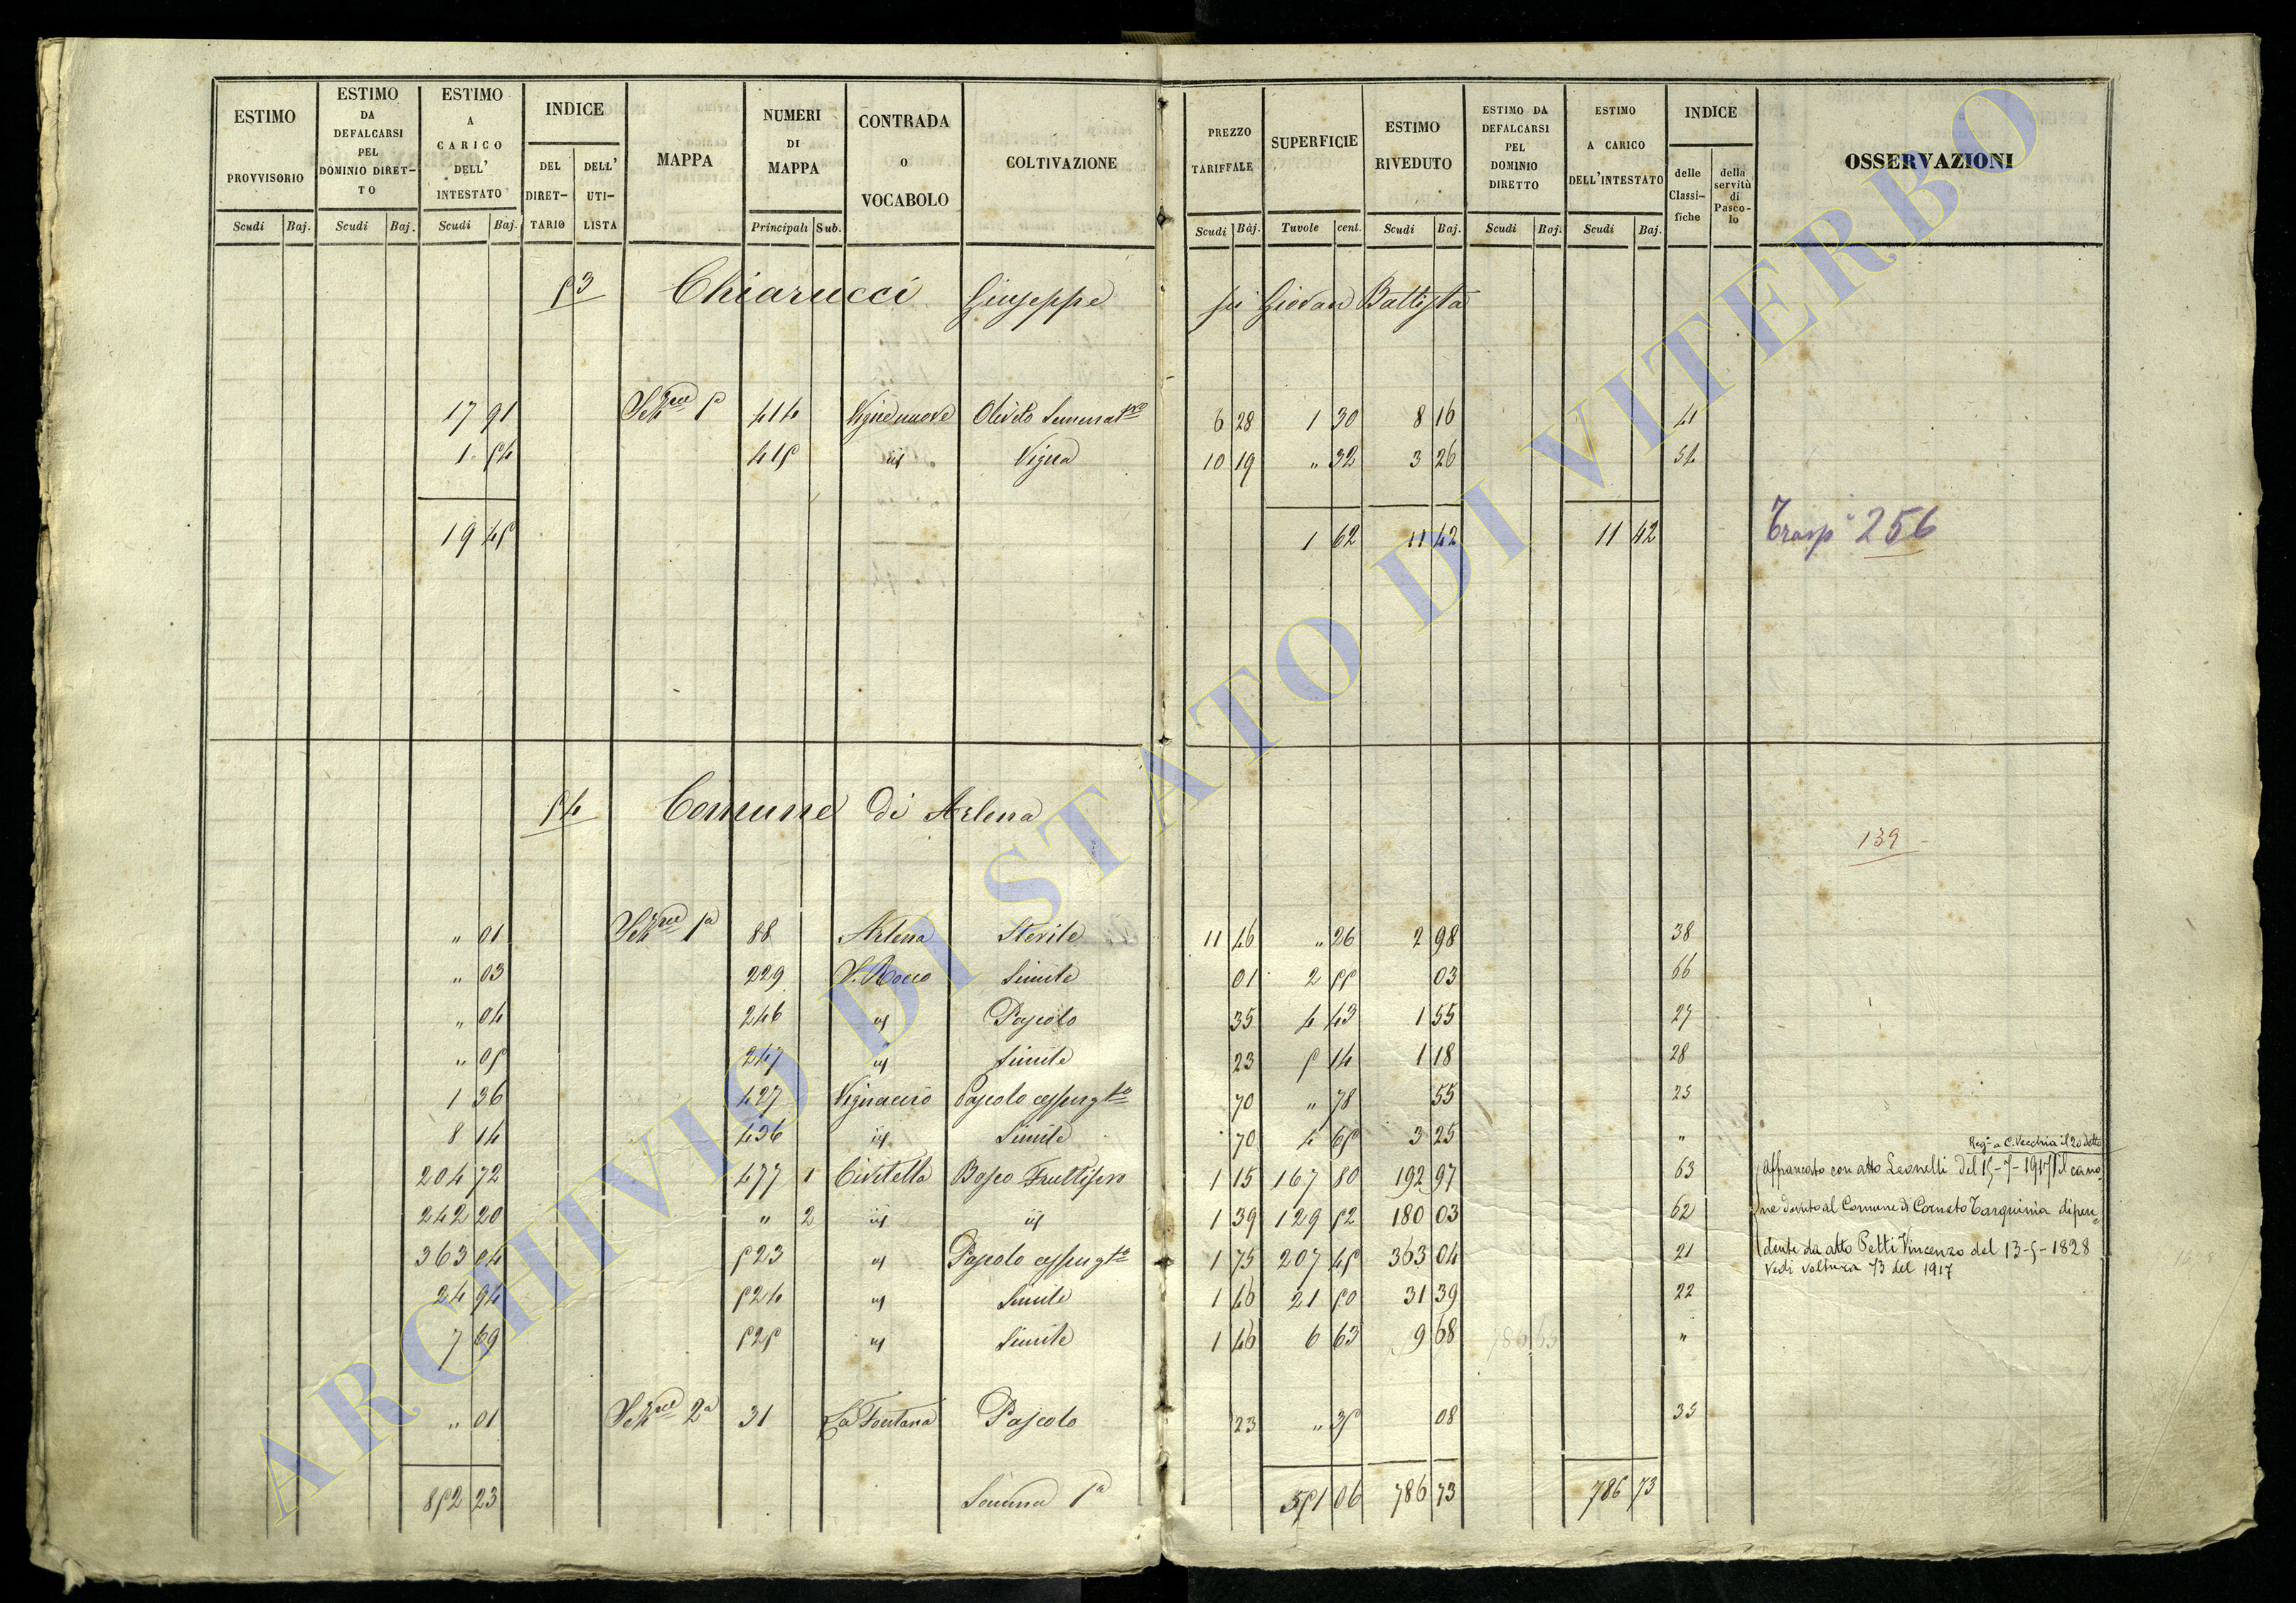 ESTIMO PROVVISORIO Scudi Baj.
ESTIMO DA DEFALCARSI PEL DOMINIO DIRET-TO Scudi Baj.
ESTIMO A CARICO DELL' INTESTATO Scudi Baj.
INDICE DEL DIRET-TARIO DELL' UTI-LISTA
MAPPA
NUMERI DI MAPPA Principali Sub.
CONTRADA o VOCABOLO
COLTIVAZIONE
PREZZO TARIFFALE Scudi Baj.
SUPERFICIE Tavole cent.
ESTIMO RIVEDUTO Scudi Baj.
ESTIMO DA DEFALCARSI PEL DOMINIO DIRETTO Scudi Baj.
ESTIMO A CARICO DELL'INTESTATO Scudi Baj.
INDICE delle Classi-fiche della servitù di Pasco-lo
OSSERVAZIONI
53 Chiarucci Giuseppe fu Giovan Battista
17 91 Sezne 1a 414 Vigne nuove Olivato Seminatvo 6 28 1 30 8 16 41
1 54 415 id Vigna 10 19 " 32 3 26 54
19 45 1 62 11 42 11 42 Trasp 256
54 Comune di Arlena
139
" 01 Sezne 1a 88 Arlena Sterile 11 46 " 26 2 98 38
" 03 229 S. Rocco Simile 01 2 55 03 66
" 04 246 id Pascolo 35 4 43 1 55 27
" 05 247 id Simile 23 5 14 1 18 28
1 36 427 Vignaccio Pascolo cespugto 70 " 78 55 25
8 14 436 id Simile 70 4 65 3 25 "
Regto a C. Vecchia il 20 detto
204 72 477 1 Civitella Bosco Fruttifero 1 15 167 80 192 97 63 Affrancato con atto Leonelli del 15-7-1917 il cano-
242 20 " 2 id id 1 39 129 52 180 03 62 ne dovuto al Comune di Corneto Tarquinia dipen-
363 04 523 id Pascolo cespugto 1 75 207 45 363 04 21 dente da atto Petti Vincenzo del 13-5-1828
Vedi voltura 73 del 1917
24 94 524 id Simile 1 46 21 50 31 39 22
7 69 525 id Simile 1 46 6 63 9 68 "
" 01 Sezne 2a 31 La Fontana Pascolo 23 " 35 08 35
852 23 Somma 1a 551 06 786 73 786 73
ARCHIVIO DI STATO DI VITERBO